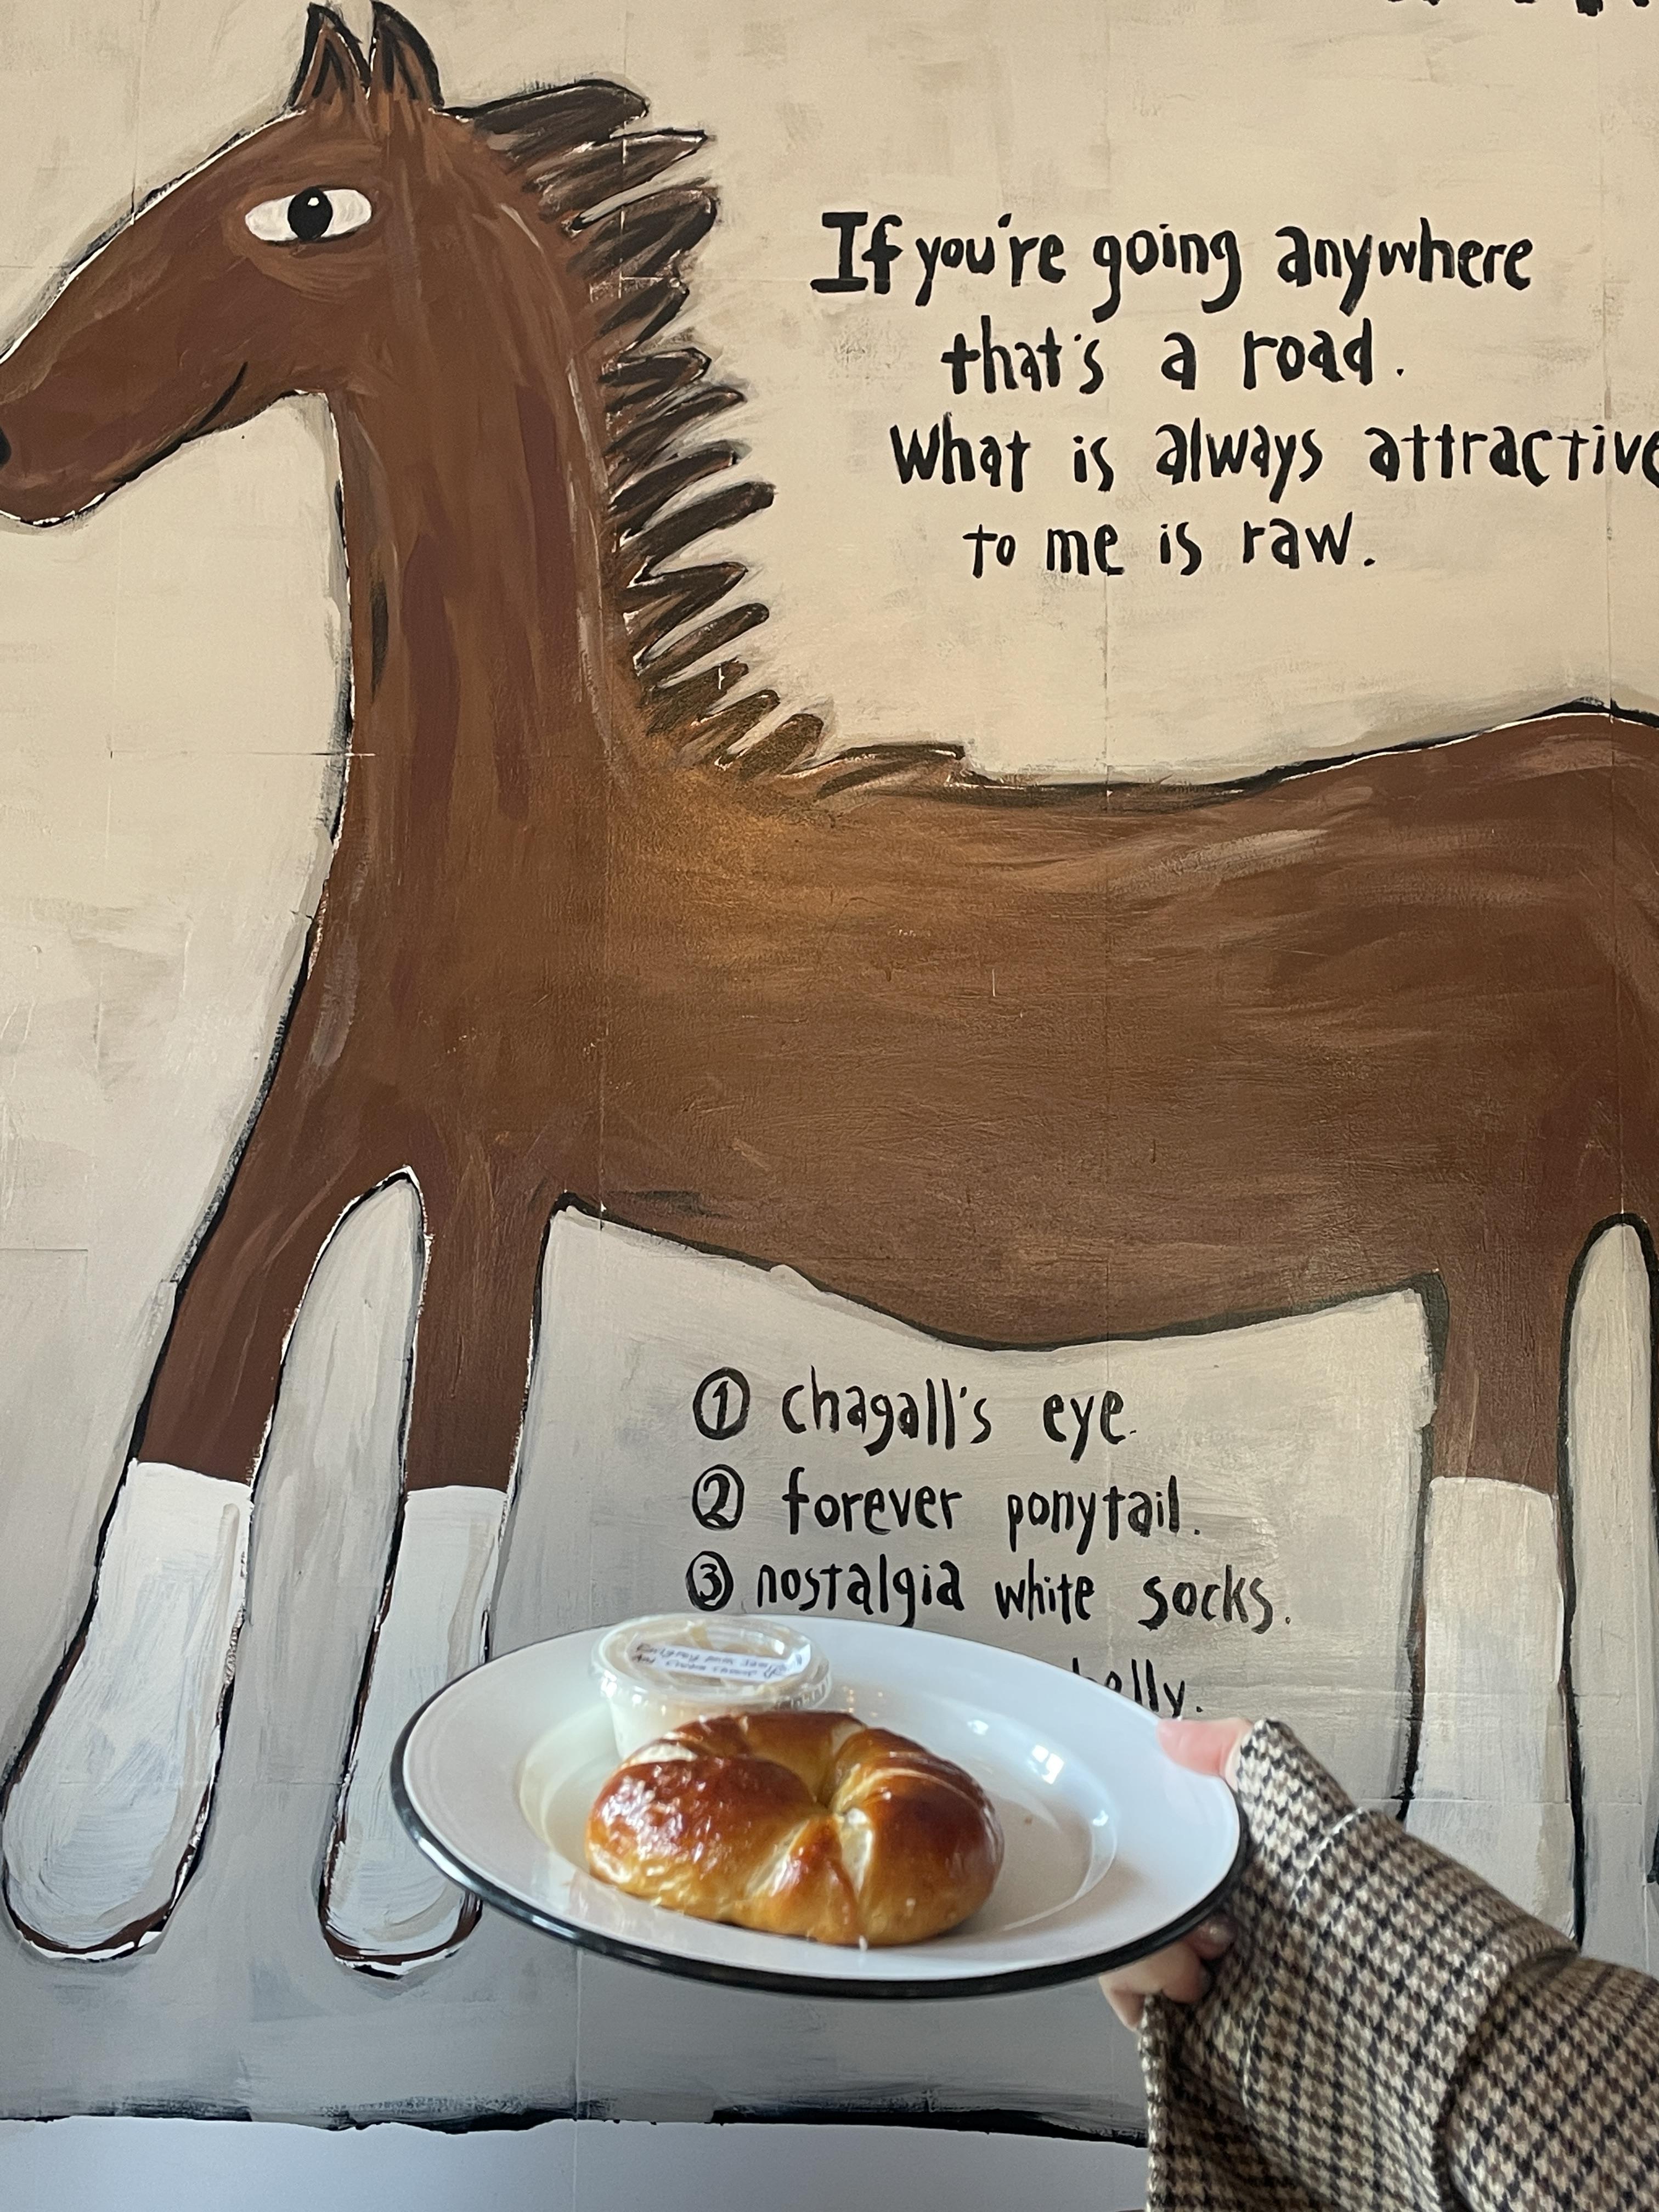 If you're going anywhere
that's a road.
what is always attractive
to me is raw.
① chagall's eye.
② forever ponytail.
③ nostalgia white socks.
elly.
And